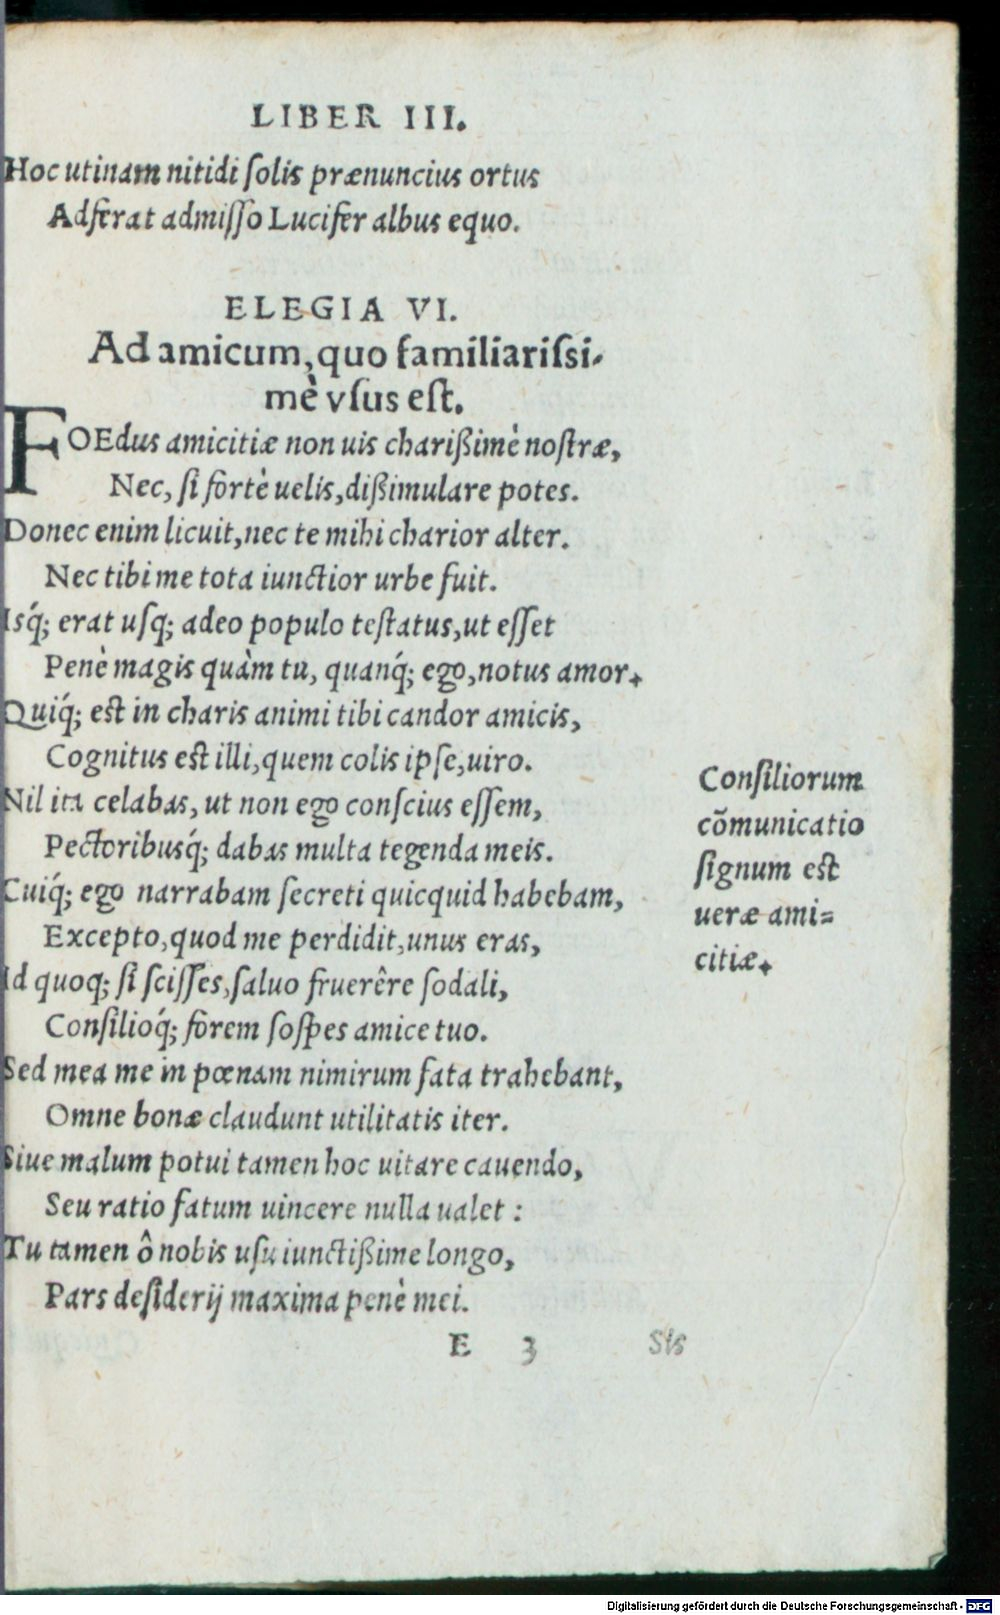 LIBER III.
Hoc utinam nitidi ſolis prænuncius ortus
Adferat admiſſo Lucifer albus equo.
ELEGIA VI.
Ad amicum, quo familiariſsi-
mè vſus eſt.
FOEdus amicitiæ non uis charißimè noſtræ,
Nec, ſi fortè uelis, dißimulare potes.
Donec enim licuit, nec te mihi charior alter.
Nec tibi me tota iunctior urbe fuit.
Isq́; erat uſq; adeo populo teſtatus, ut eſſet
Penè magis quàm tu, quanq́; ego, notus amor.
Quiq́; eſt in charis animi tibi candor amicis,
Cognitus eſt illi, quem colis ipſe, uiro.
Nil ita celabas, ut non ego conſcius eſſem,
Pectoribusq́; dabas multa tegenda meis.
Cuiq́; ego narrabam ſecreti quicquid habebam,
Excepto, quod me perdidit, unus eras,
Id quoq; ſi ſciſſes, ſaluo fruerêre ſodali,
Conſilioq́; forem ſoſpes amice tuo.
Sed mea me in pœnam nimirum fata trahebant,
Omne bonæ claudunt utilitatis iter.
Siue malum potui tamen hoc uitare cauendo,
Seu ratio fatum uincere nulla ualet :
Tu tamen ô nobis uſu iunctißime longo,
Pars deſiderij maxima penè mei.
E 3 Sis
Conſiliorum
cõmunicatio
ſignum eſt
ueræ ami=
citiæ.
Digitalisierung gefördert durch die Deutsche Forschungsgemeinschaft - DFG